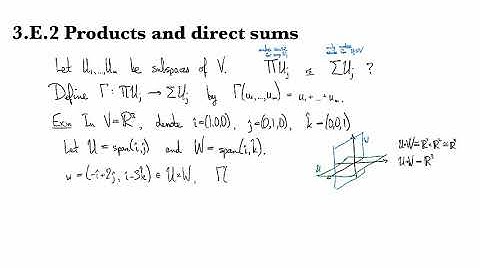 3.E.2 Products and direct sums
Let U₁,...,Uₘ be subspaces of V. ΠUⱼ vs ΣUⱼ ?
Define Γ: ΠUⱼ → ΣUⱼ by Γ(u₁,...,uₘ) = u₁+...+uₘ.
In V=ℝ³, denote i=(1,0,0), j=(0,1,0), k=(0,0,1)
Let U = span(i,j) and W = span(i,k).
u = (-i+2j, i-3k) ∈ U×W, Γ
U
W
U×W = ℝ²×ℝ² ≅ ℝ⁴
U+W = ℝ³